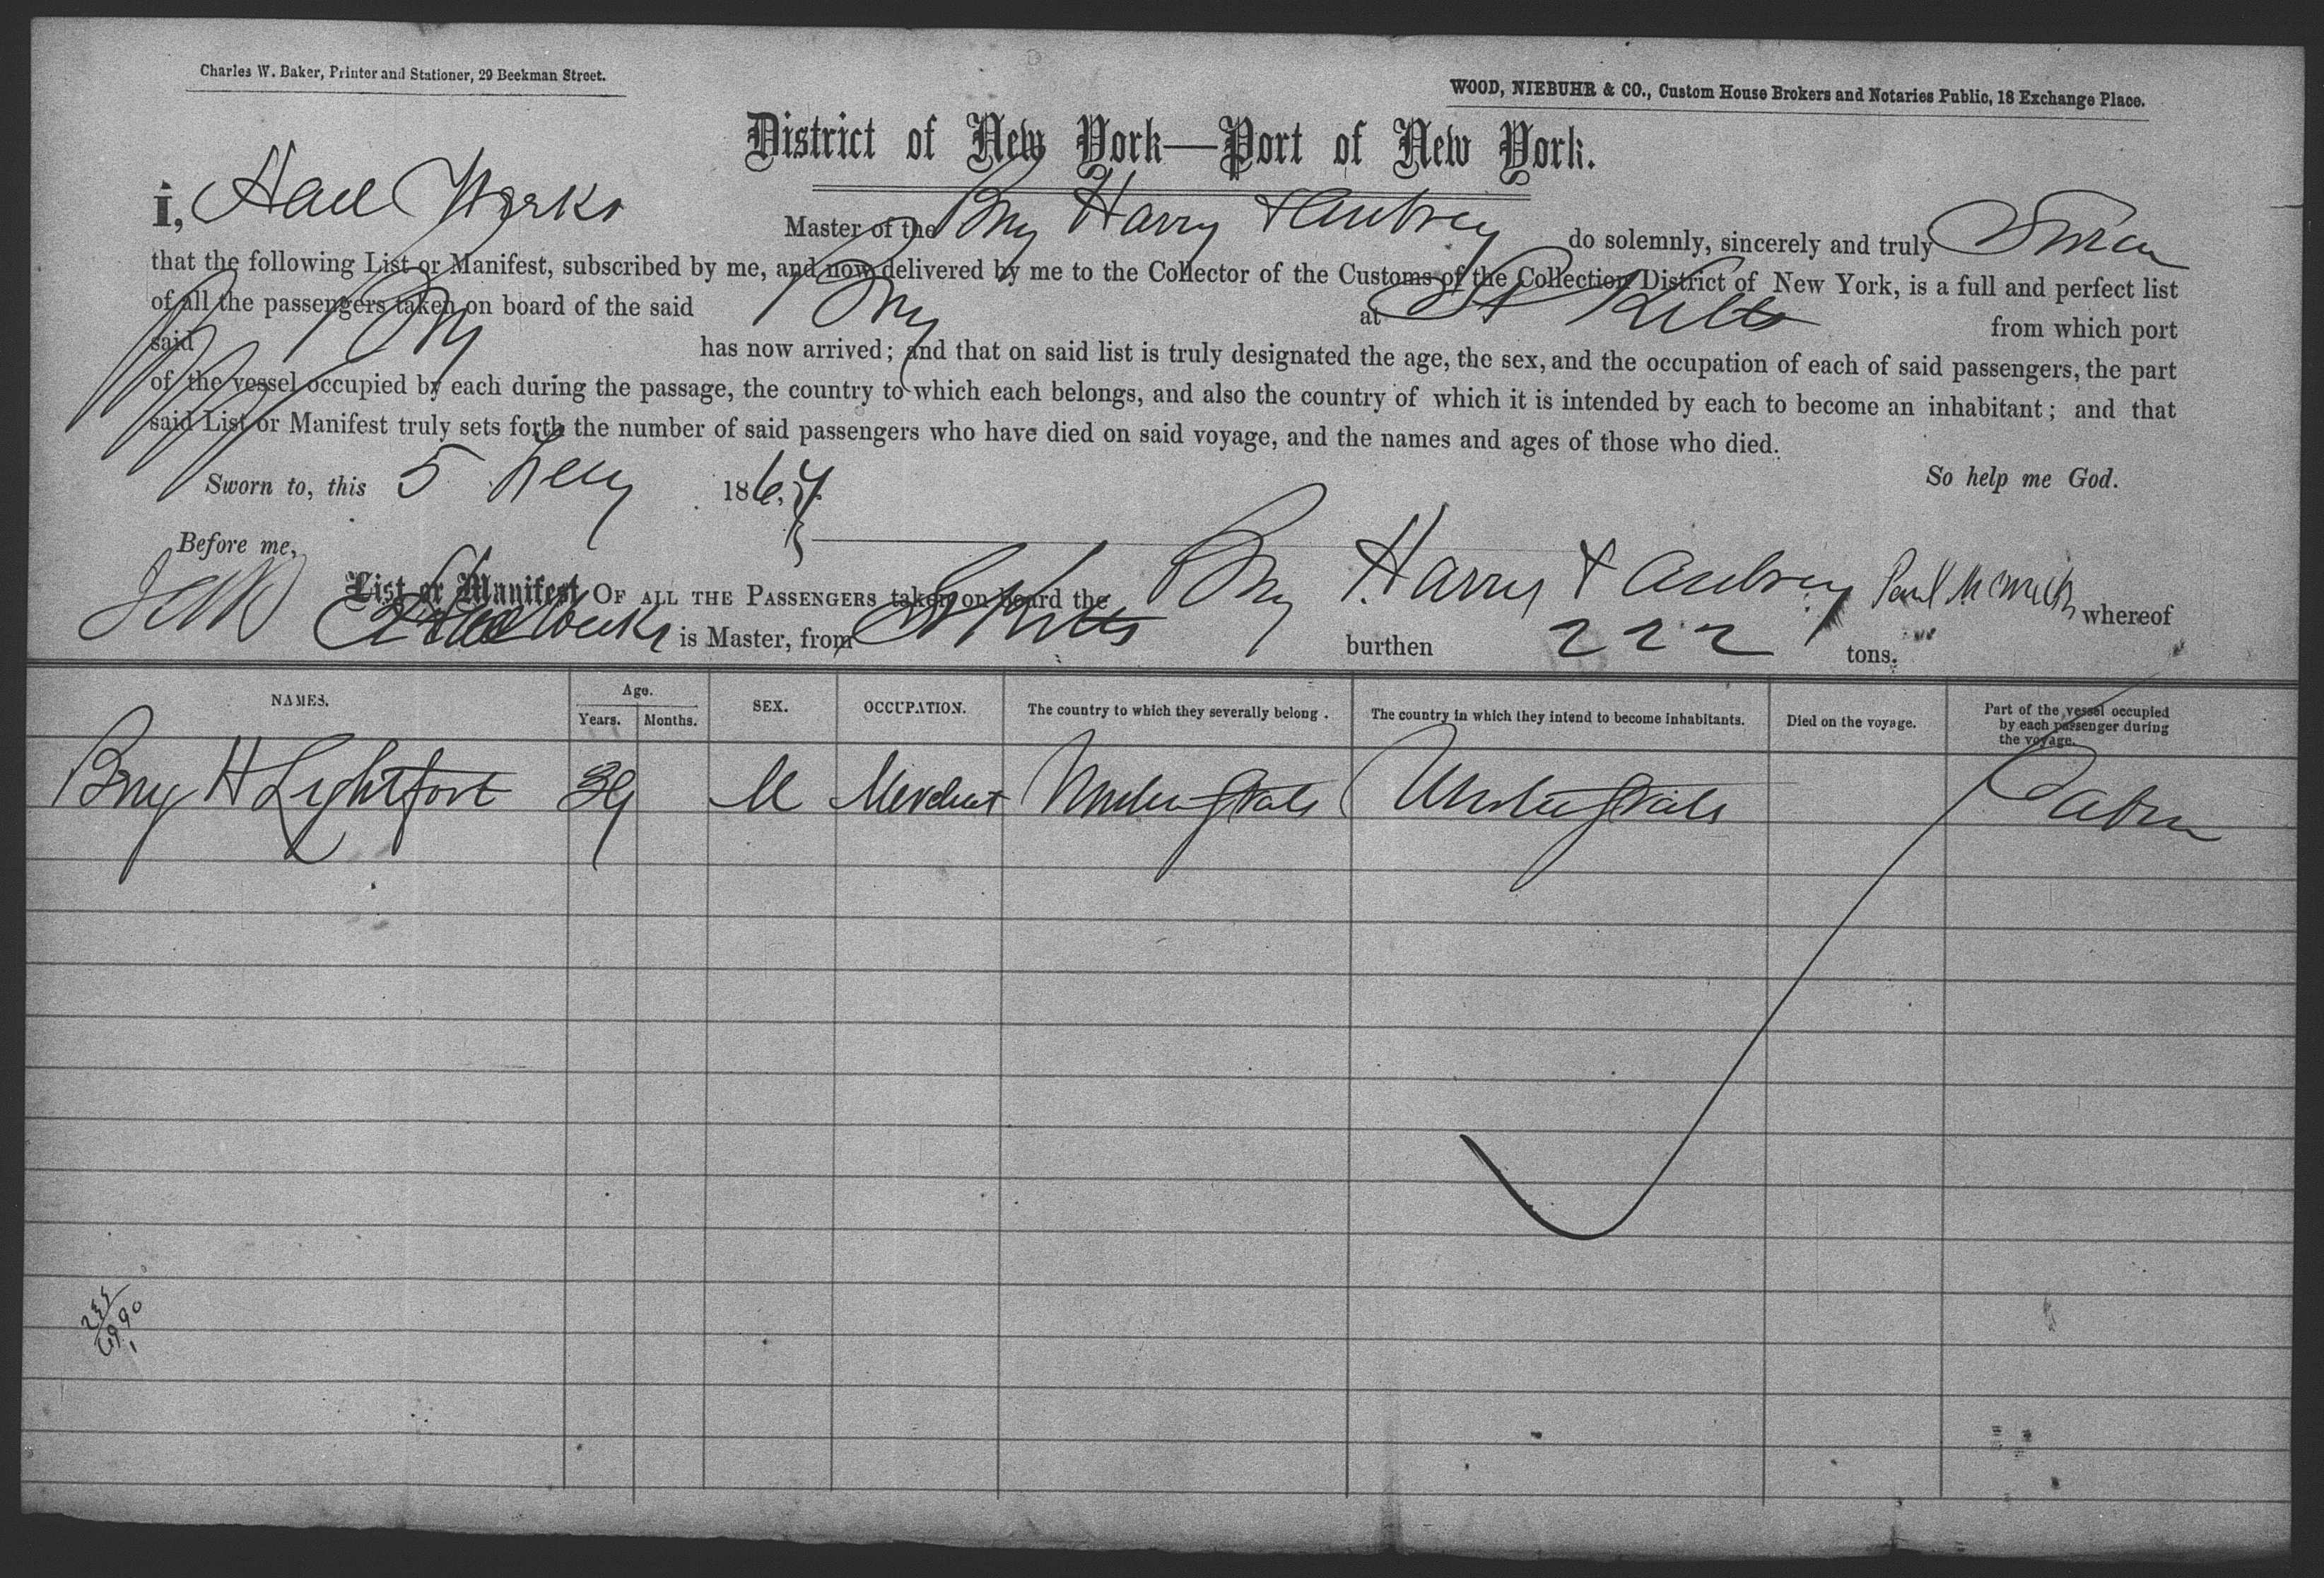 Charles W. Baker, Printer and Stationer, 29 Beekman Street.
WOOD, NIEBUHR & CO., Custom House Brokers and Notaries Public, 18 Exchange Place.
District of New York—Port of New York.
I, Master of the Brig Harry & Aubrey do solemnly, sincerely and truly Swear
that the following List or Manifest, subscribed by me, and now delivered by me to the Collector of the Customs of the Collection District of New York, is a full and perfect list
of all the passengers taken on board of the said Brig at St Kitts from which port
said Brig has now arrived; and that on said list is truly designated the age, the sex, and the occupation of each of said passengers, the part
of the vessel occupied by each during the passage, the country to which each belongs, and also the country of which it is intended by each to become an inhabitant; and that
said List or Manifest truly sets forth the number of said passengers who have died on said voyage, and the names and ages of those who died.
So help me God.
Sworn to, this 5 186
Before me,
List or Manifest OF ALL THE PASSENGERS taken on board the Brig Harry & Aubrey whereof
is Master, from St Kitts burthen 222 tons.
NAMES. Age. Years. Months. SEX. OCCUPATION. The country to which they severally belong. The country in which they intend to become inhabitants. Died on the voyage. Part of the vessel occupied by each passenger during the voyage.
H Lightfoot 39 M Merchant United States United States Cabin